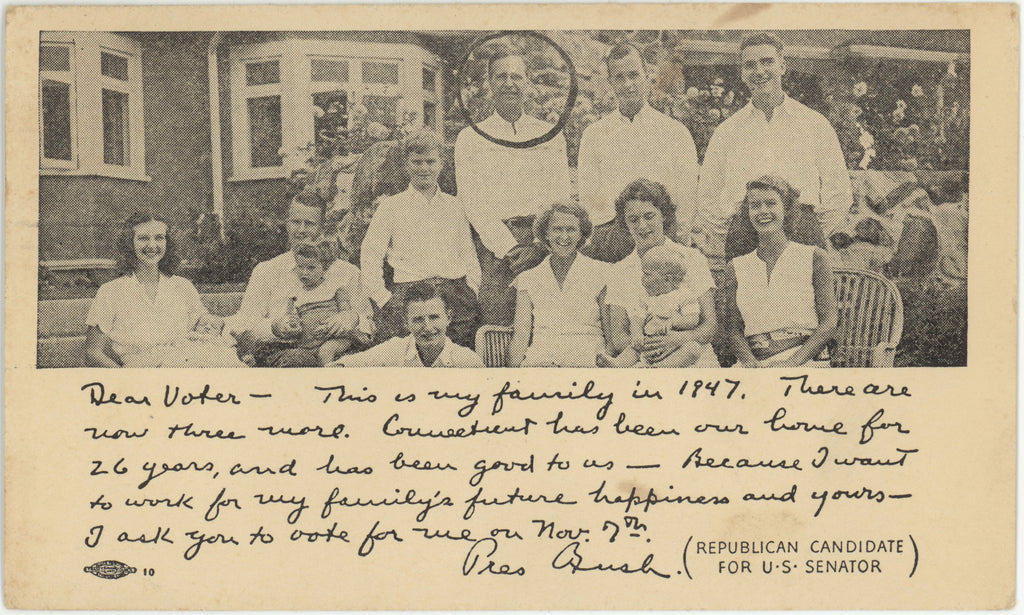 Dear Voter — This is my family in 1947. There are
now three more. Connecticut has been our home for
26 years, and has been good to us — Because I want
to work for my family's future happiness and yours —
I ask you to vote for me on Nov. 7th.
Pres Bush.
(REPUBLICAN CANDIDATE
FOR U·S· SENATOR)
10